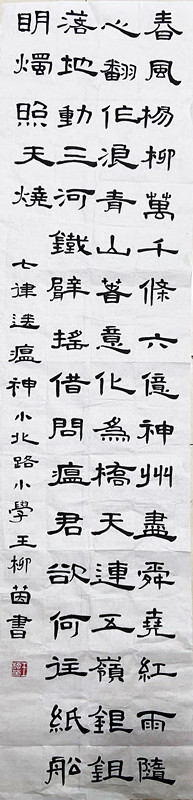 春風楊柳萬千條六億神州盡舜堯紅雨隨
心翻作浪青山著意化為橋天連五嶺銀鉏
落地動三河鐵臂搖借問瘟君欲何往紙船
明燭照天燒
七律送瘟神小北路小學王柳茵書